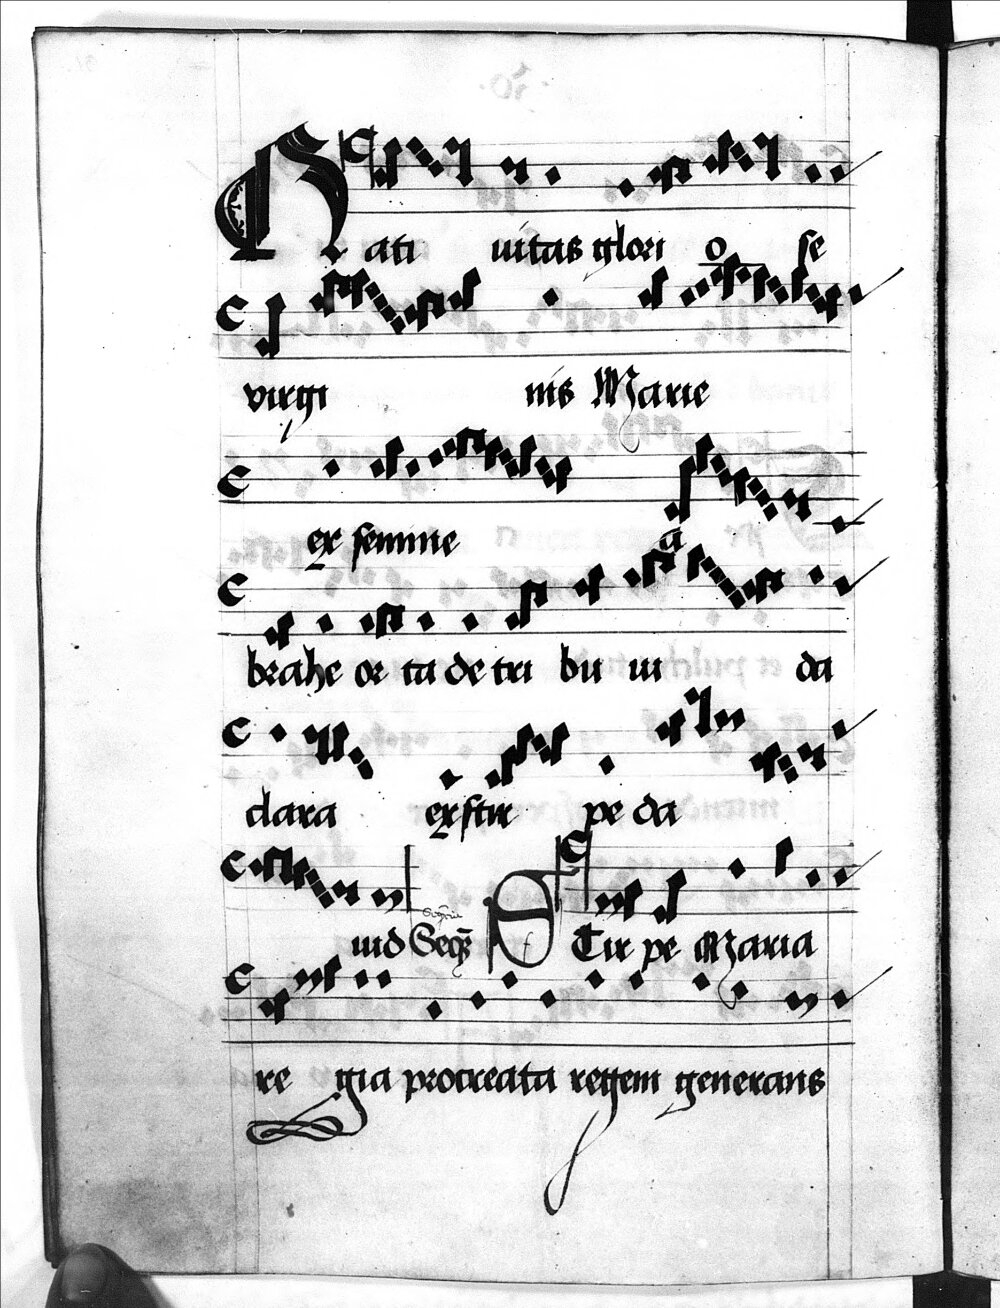 Nati vitas glori o se
virgi nis Marie
ex semine a
brahe or ta de tri bu iu da
clara ex stir pe da
uid Seq̄ Stir pe Maria
re gia procreata regem generans